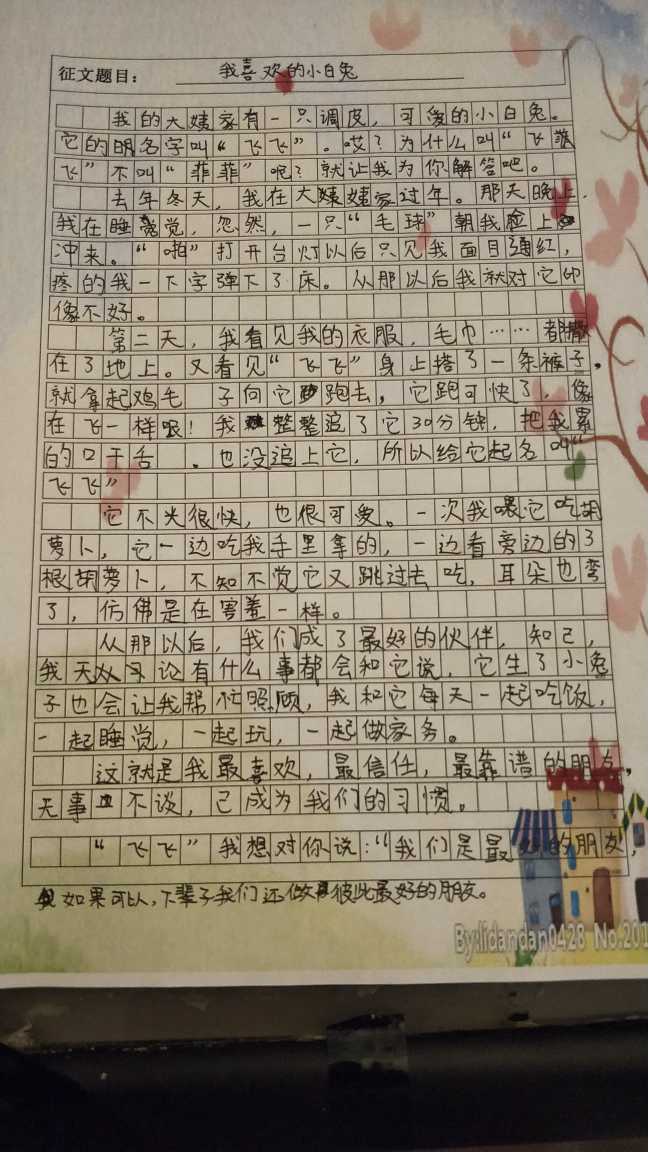 征文题目： 我喜欢的小白兔
我的大姨家有一只调皮，可爱的小白兔。
它的明名字叫“飞飞”。哎？为什么叫“飞
飞”不叫“菲菲”呢？就让我为你解答吧。
去年冬天，我在大姨姨家过年。那天晚上，
我在睡觉，忽然，一只“毛球”朝我脸上
冲来。“啪”打开台灯以后只见我面目通红，
疼的我一下字弹下了床。从那以后我就对它印
像不好。
第二天，我看见我的衣服，毛巾……都撒
在了地上。又看见“飞飞”身上搭了一条裤子，
就拿起鸡毛 子向它跑去，它跑可快了，像
在飞一样哏！我整整追了它30分钟，把我累
的口干舌 ．也没追上它，所以给它起名叫“
飞飞”
它不光很快，也很可爱。一次我喂它吃胡
萝卜，它一边吃我手里拿的，一边看旁边的3
根胡萝卜，不知不觉它又跳过去吃，耳朵也弯
了，仿佛是在害羞一样。
从那以后，我们成了最好的伙伴，知己，
我无论有什么事都会和它说，它生了小兔
子也会让我帮忙照顾，我和它每天一起吃饭，
一起睡觉，一起玩，一起做家务。
这就是我最喜欢，最信任，最靠谱的朋友，
无事不谈，己成为我们的习惯。
“飞飞”我想对你说：“我们是最好的朋友，
如果可以，下辈子我们还做彼此最好的朋友。
By:lidandan0428 No.201